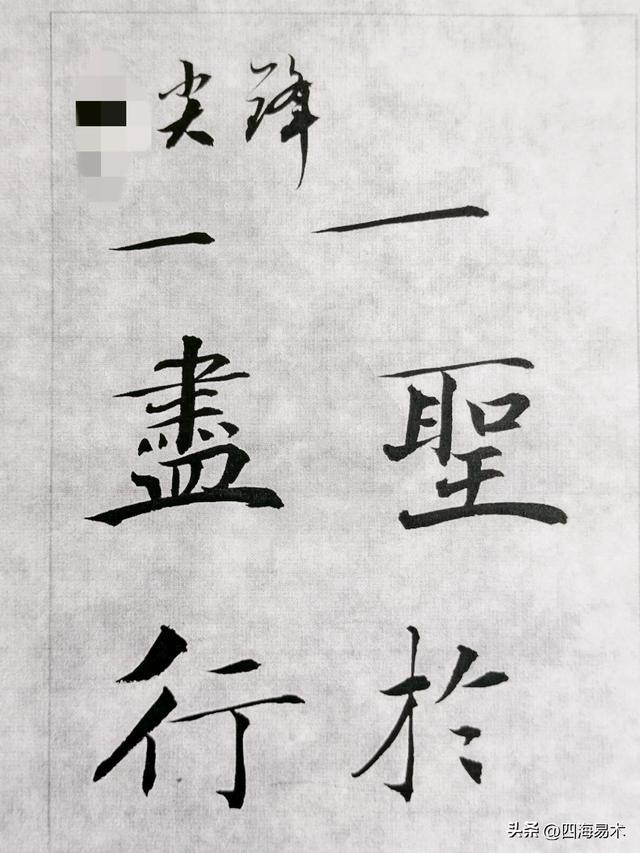 尖锋
一聖於
一盡行
头条 @四海易术